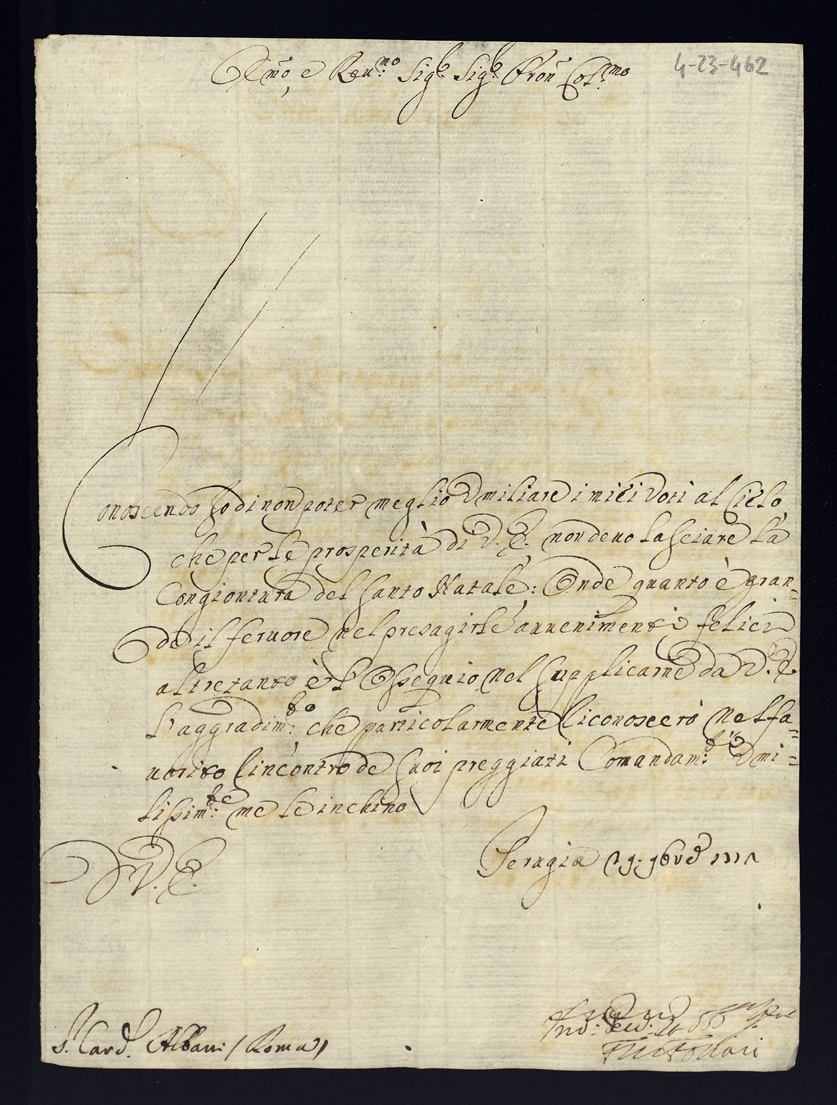 Em̃o, e Reu:mo Sig:e Sig:e Pron̄ Col:mo
4-23-462
Conoscendo Jo di non poter meglio Vmiliare i miei Voti al Cielo
che per le prosperità di V. E. non deuo lasciare la
Congiontura del Santo Natale; Onde quanto è gran=
de il feruore nel presagirle auuenimenti felici
altretanto è l'Ossequio nel Supplicarne da V. E.
l'aggradim:to che particolarmente riconoscerò nel fa=
uorito l'incontro de suoi preggiati Comandam:ti e Vmi=
lissim:te me le inchino
D V. E.
Perugia 19: 9bre
S. Card. Albani (Roma)